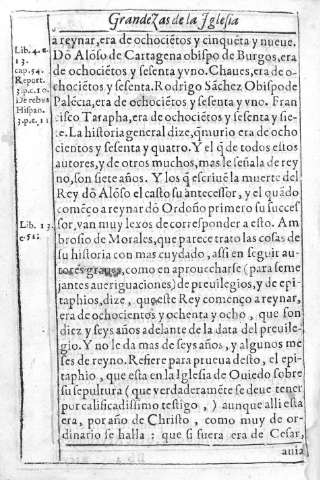 Grandezas de la Iglesia
a reynar, era de ochociẽtos y cinquẽta y nueue.
Dõ Alõso de Cartagena obispo de Burgos, era
de ochociẽtos y sesenta y vno. Chaues, era de o-
chociẽtos y sesenta. Rodrigo Sãchez Obispo de
Palẽcia, era de ochociẽtos y sesenta y vno. Fran
cisco Tarapha, era de ochociẽtos y sesenta y sie-
te. La historia general dize, q̃ murio era de ocho
cientos y sesenta y quatro. Y el q̃ de todos estos
autores, y de otros muchos, mas le señala de rey
no, son siete años. Y los q̃ escriuẽ la muerte del
Rey dõ Alõso el casto su antecessor, y el quãdo
comẽço a reynar dõ Ordoño primero su succes
sor, van muy lexos de corresponder a esto. Am
brosio de Morales, que parece trato las cosas de
su historia con mas cuydado, assi en seguir au-
tores graues, como en aprouecharse (para seme
jantes aueriguaciones) de preuilegios, y de epi-
taphios, dize, que este Rey comẽço a reynar,
era de ochocientos y ochenta y ocho, que son
diez y seys años adelante de la data del preuile-
gio. Y no le da mas de seys años, y algunos me
ses de reyno. Refiere para prueua desto, el epi-
taphio, que esta en la Iglesia de Ouiedo sobre
su sepultura (que verdaderamẽte se deue tener
por calificadissimo testigo,) aunque alli esta
era, por año de Christo, como muy de or-
dinario se halla: que si fuera era de Cesar,
auia
Lib. 4. c.
13.
cap. 54.
Report.
3. p. c. 10.
De rebus
Hispan.
3. p. c. 11
Lib. 13.
c. 51.